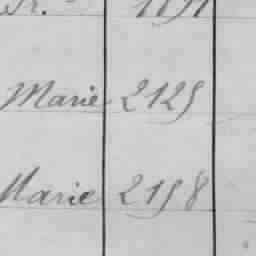 Marie 2125
Marie 2158